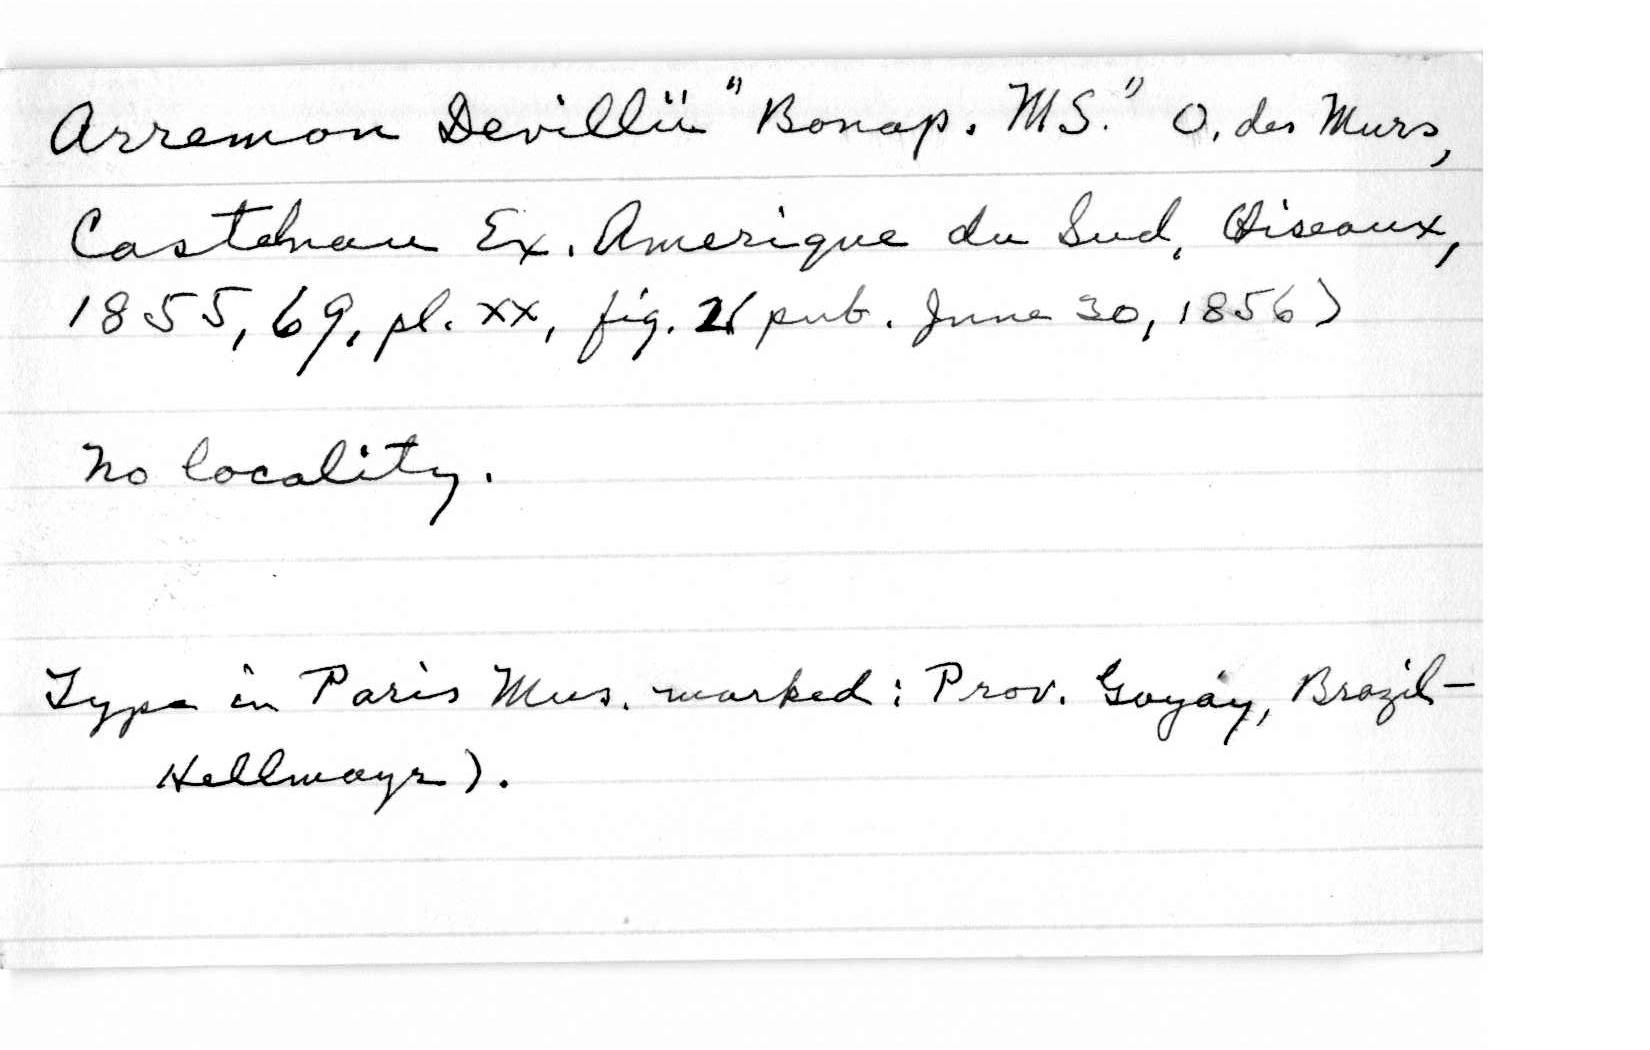 Arremon Devillii "Bonap. MS." O. des Murs,
Castelnau Ex. Amerique du Sud, Oiseaux,
1855, 69, pl. xx, fig. 2 (pub. June 30, 1856)
No locality.
Type in Paris Mus. marked: Prov. Goyáy, Brazil -
Hellmayr).